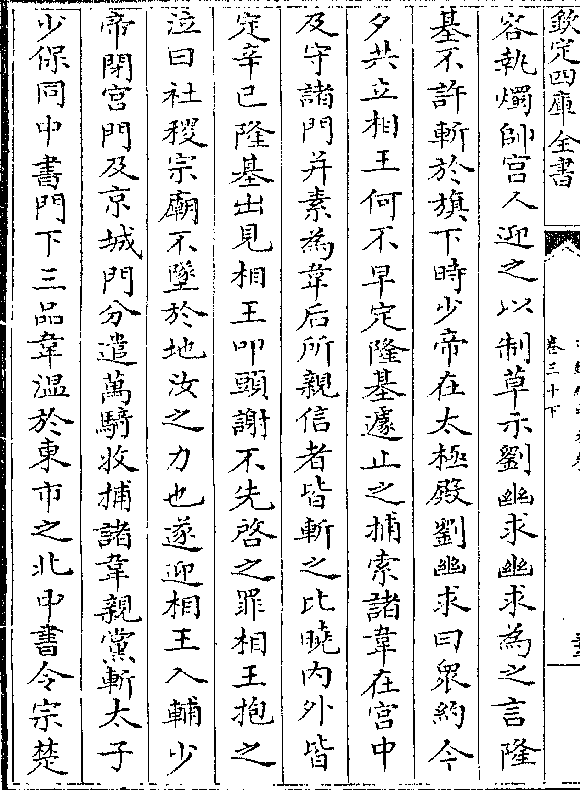 欽定四庫全書
卷三十下
容執燭帥宮人迎之以制草示劉幽求幽求為之言隆
基不許斬於旗下時少帝在太極殿劉幽求曰衆約今
夕共立相王何不早定隆基遽止之捕索諸韋在宮中
及守諸門并素為韋后所親信者皆斬之比曉内外皆
定辛巳隆基出見相王叩頭謝不先啓之罪相王抱之
泣曰社稷宗廟不墜於地汝之力也遂迎相王入輔少
帝閉宮門及京城門分遣萬騎收捕諸韋親黨斬太子
少保同中書門下三品韋温於東市之北中書令宗楚